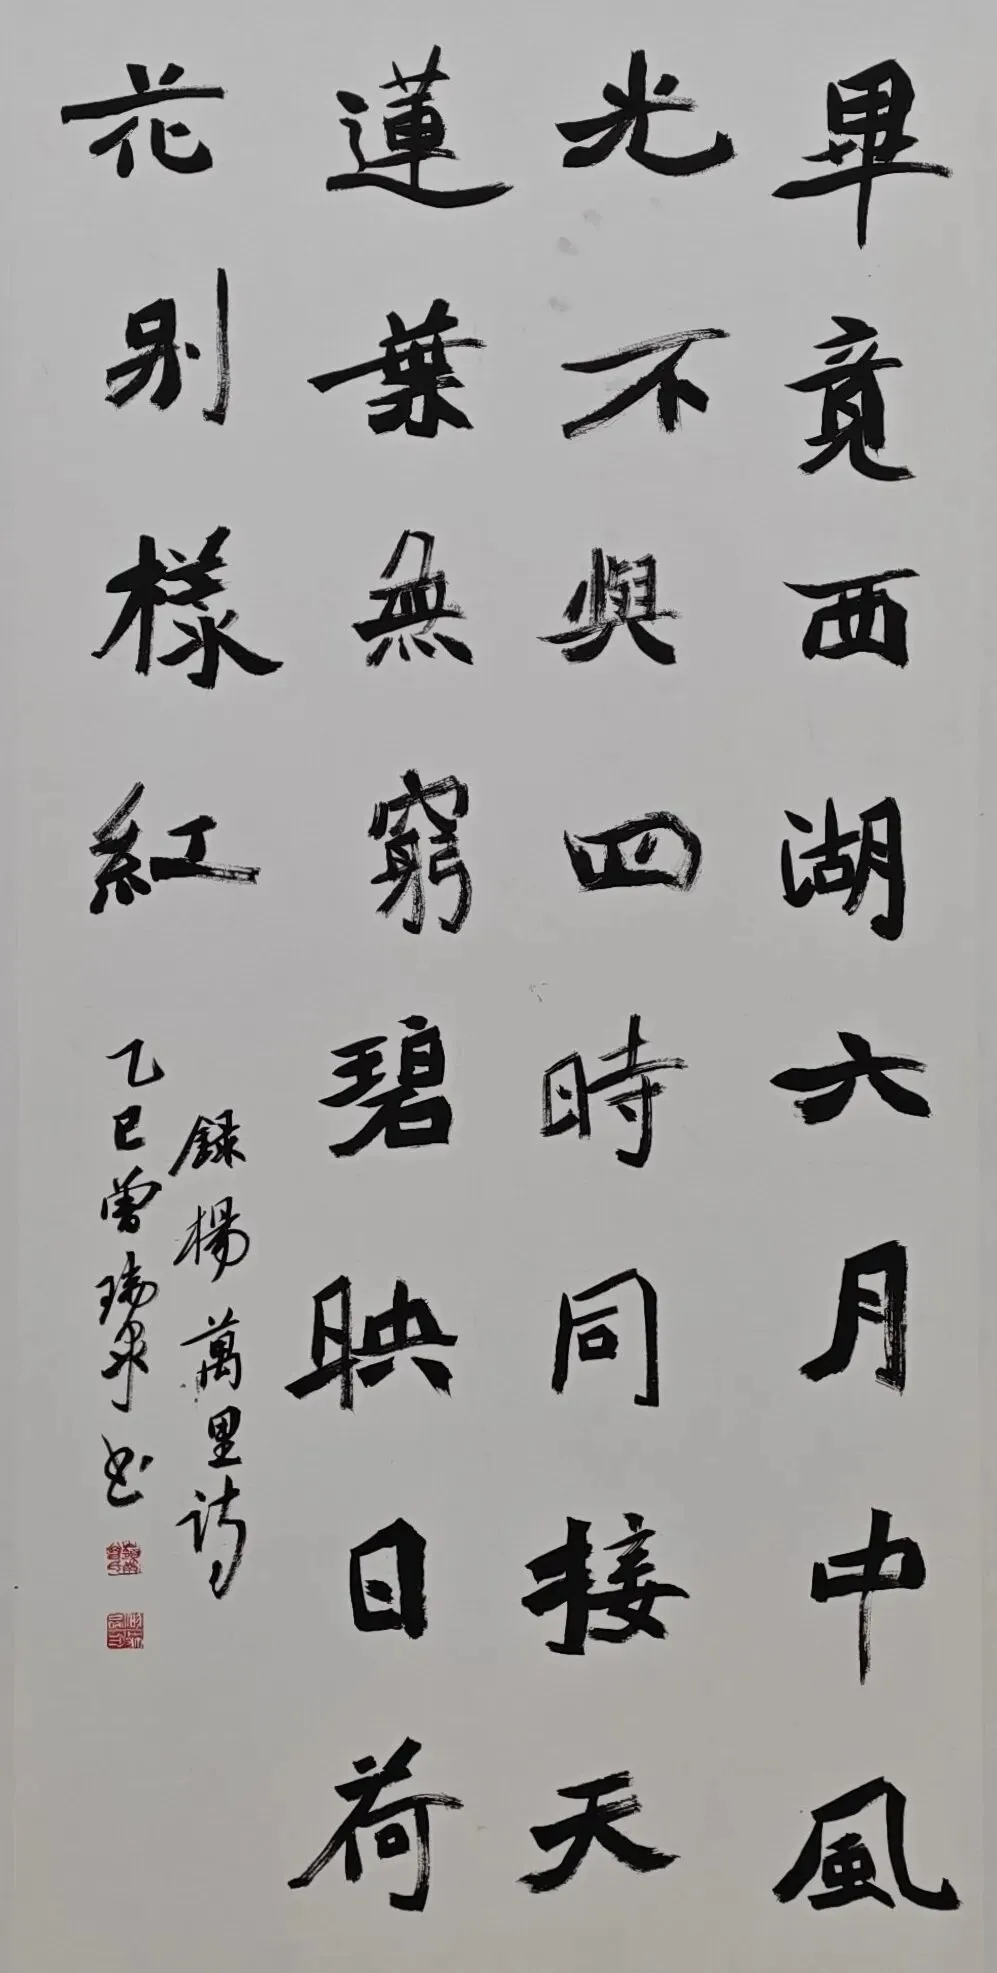 畢竟西湖六月中風
光不與四時同接天
蓮葉無窮碧映日荷
花別樣紅
録楊萬里詩
乙巳曾瑞泉书